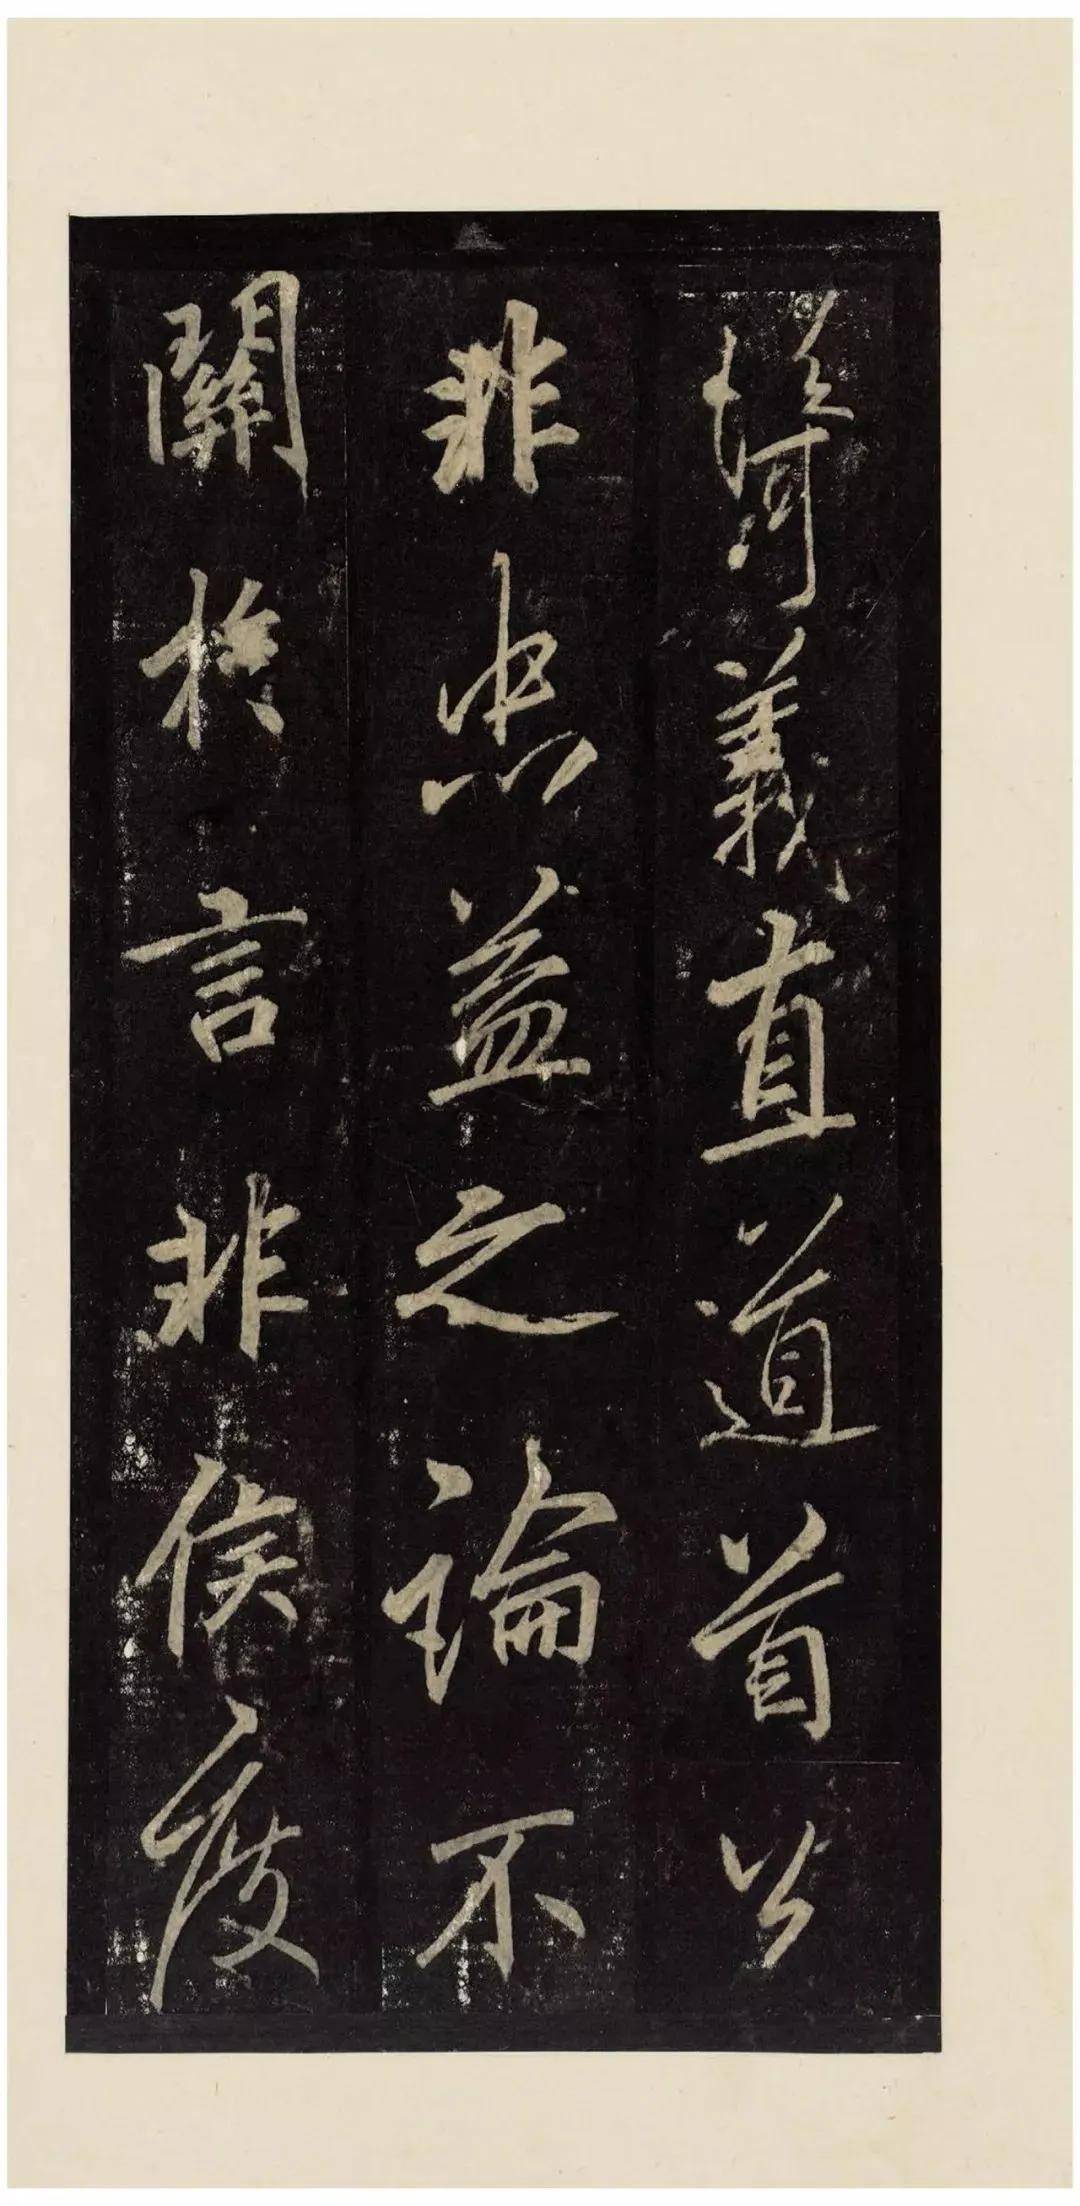 義直道首公
非忠益之論不
關於言非侯度